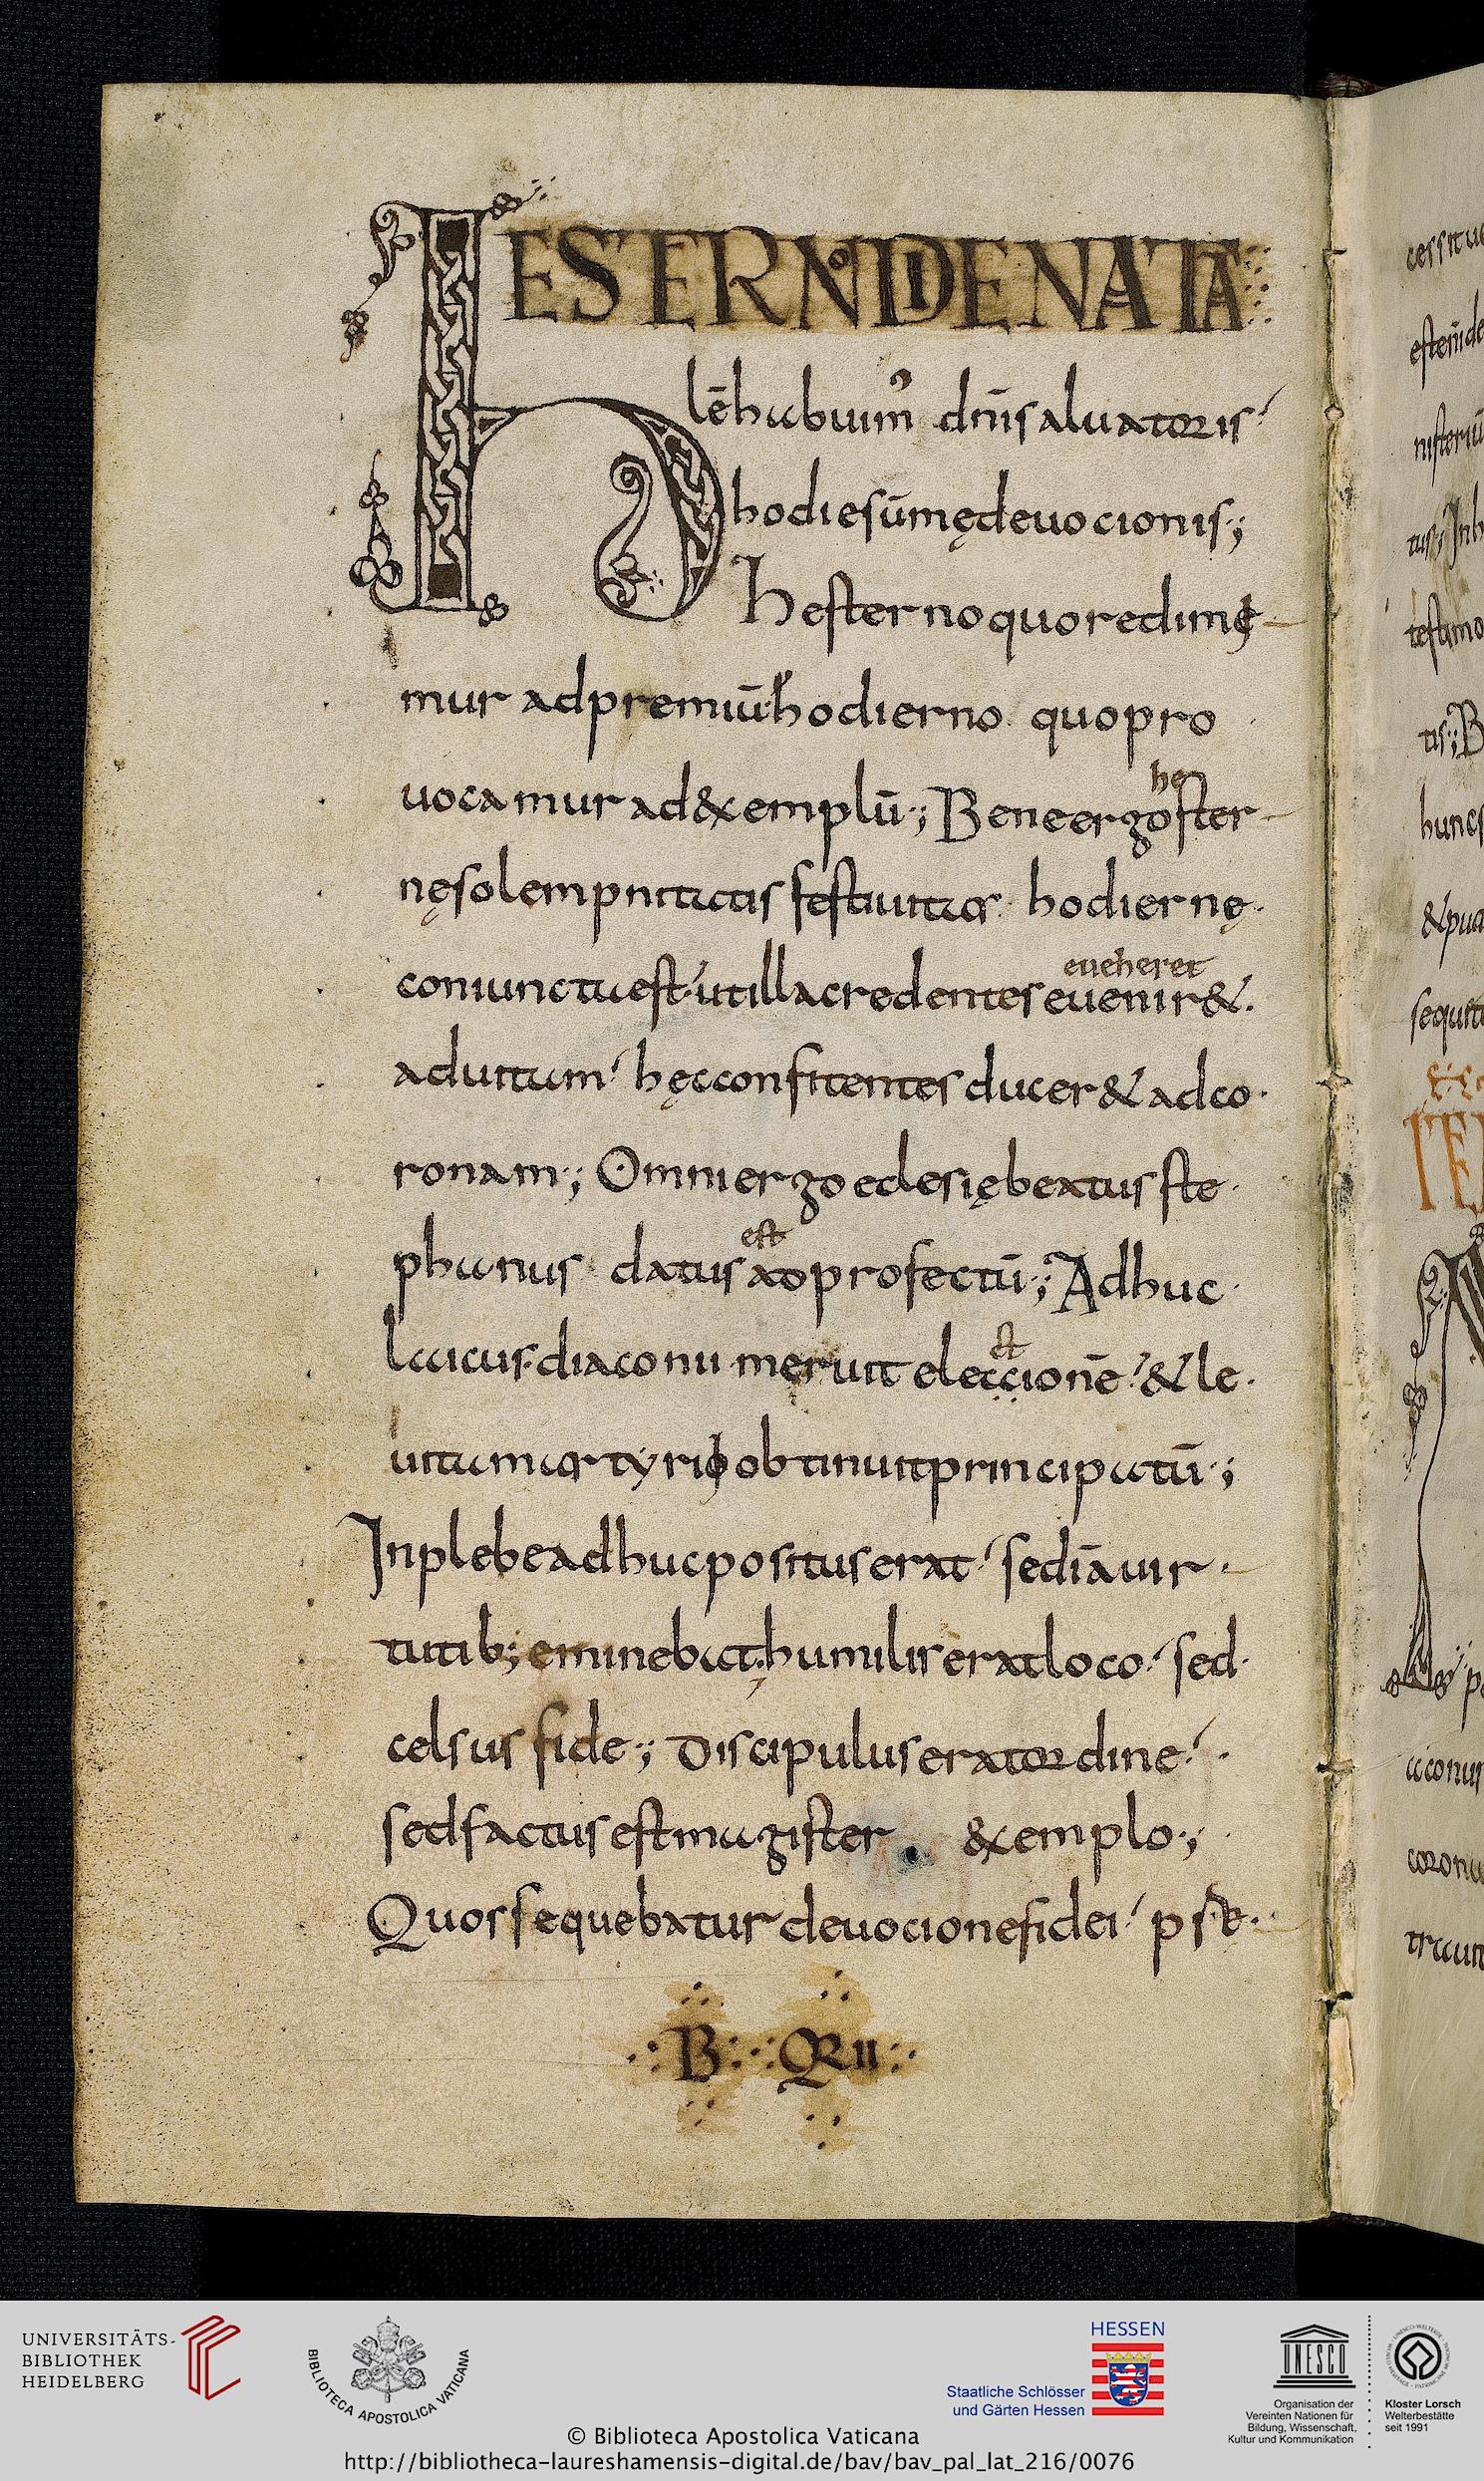 HESTERNO DIE NATA
lē habuimꝰ dn̄i saluatoris
hodie sūmę deuocionis;
Hesterno quo redimę
mur ad premiū hodierno quo pro
uocamur ad &xemplū; Bene ergo
he
ster
nę solempnitatis festiuitas hodiernę
coniuncta est ut illa credentes euenir&
eueheret
ad uitam hęc confitentes ducer& ad co
ronam; Omni ergo eclesię beatus ste
phanus datus ad profectū; Adhuc
est
laicus diaconii meruit eleccionē & le
ct
uita martyrii obtinuit principatū;
In plebe adhuc positus erat sed iā uir
tutib; eminebat humilis erat loco sed
celsus fide; Discipulus erat ordine
sed factus est magister &xemplo;
Quos sequebatur deuocione fidei
B QR II
cessit
nisteriū
sequit
aconus
corona
UNIVERSITÄTS-
BIBLIOTHEK
HEIDELBERG
BIBLIOTECA APOSTOLICA VATICANA
HESSEN
Staatliche Schlösser
und Gärten Hessen
UNESCO
Organisation der
Vereinten Nationen für
Bildung, Wissenschaft,
Kultur und Kommunikation
Kloster Lorsch
Welterbestätte
seit 1991
© Biblioteca Apostolica Vaticana
http://bibliotheca-laureshamensis-digital.de/bav/bav_pal_lat_216/0076